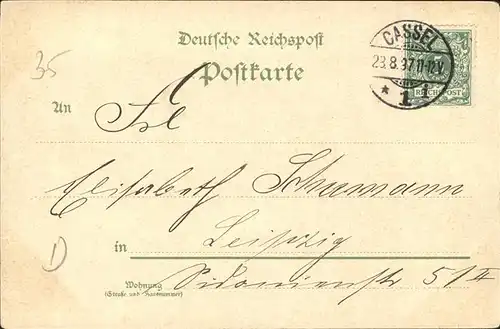 Deutsche Reichspost
Postkarte
35
CASSEL
23.8.97.11-12V.
* 1 *
REICHSPOST
An
Frl
Elisabeth Schumann
in
Leipzig
D
Wohnung
(Straße und Hausnummer)
Sidonienstr 51 II